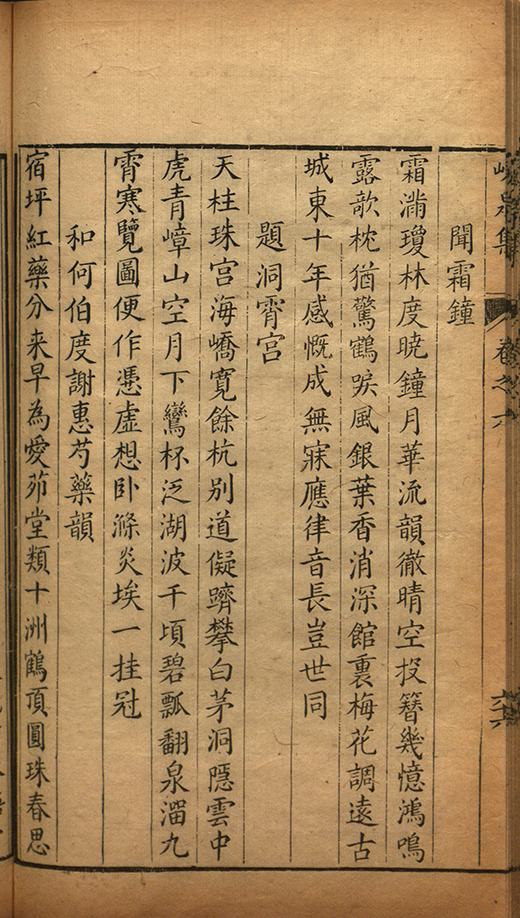 峴泉集 卷之六
聞霜鐘
霜滿瓊林度曉鐘月華流韻徹晴空投簪幾憶鴻鳴
露欹枕猶驚鶴唳風銀葉香消深館裏梅花調遠古
城東十年感慨成無寐應律音長豈世同
題洞霄宮
天柱珠宮海嶠寬餘杭別道儗躋攀白茅洞隱雲中
虎青嶂山空月下鸞杯泛湖波千頃碧瓢翻泉溜九
霄寒覽圖便作憑虛想卧滌炎埃一挂冠
和何伯度謝惠芍藥韻
宿坪紅藥分来早為愛茆堂類十洲鶴頂圓珠春思